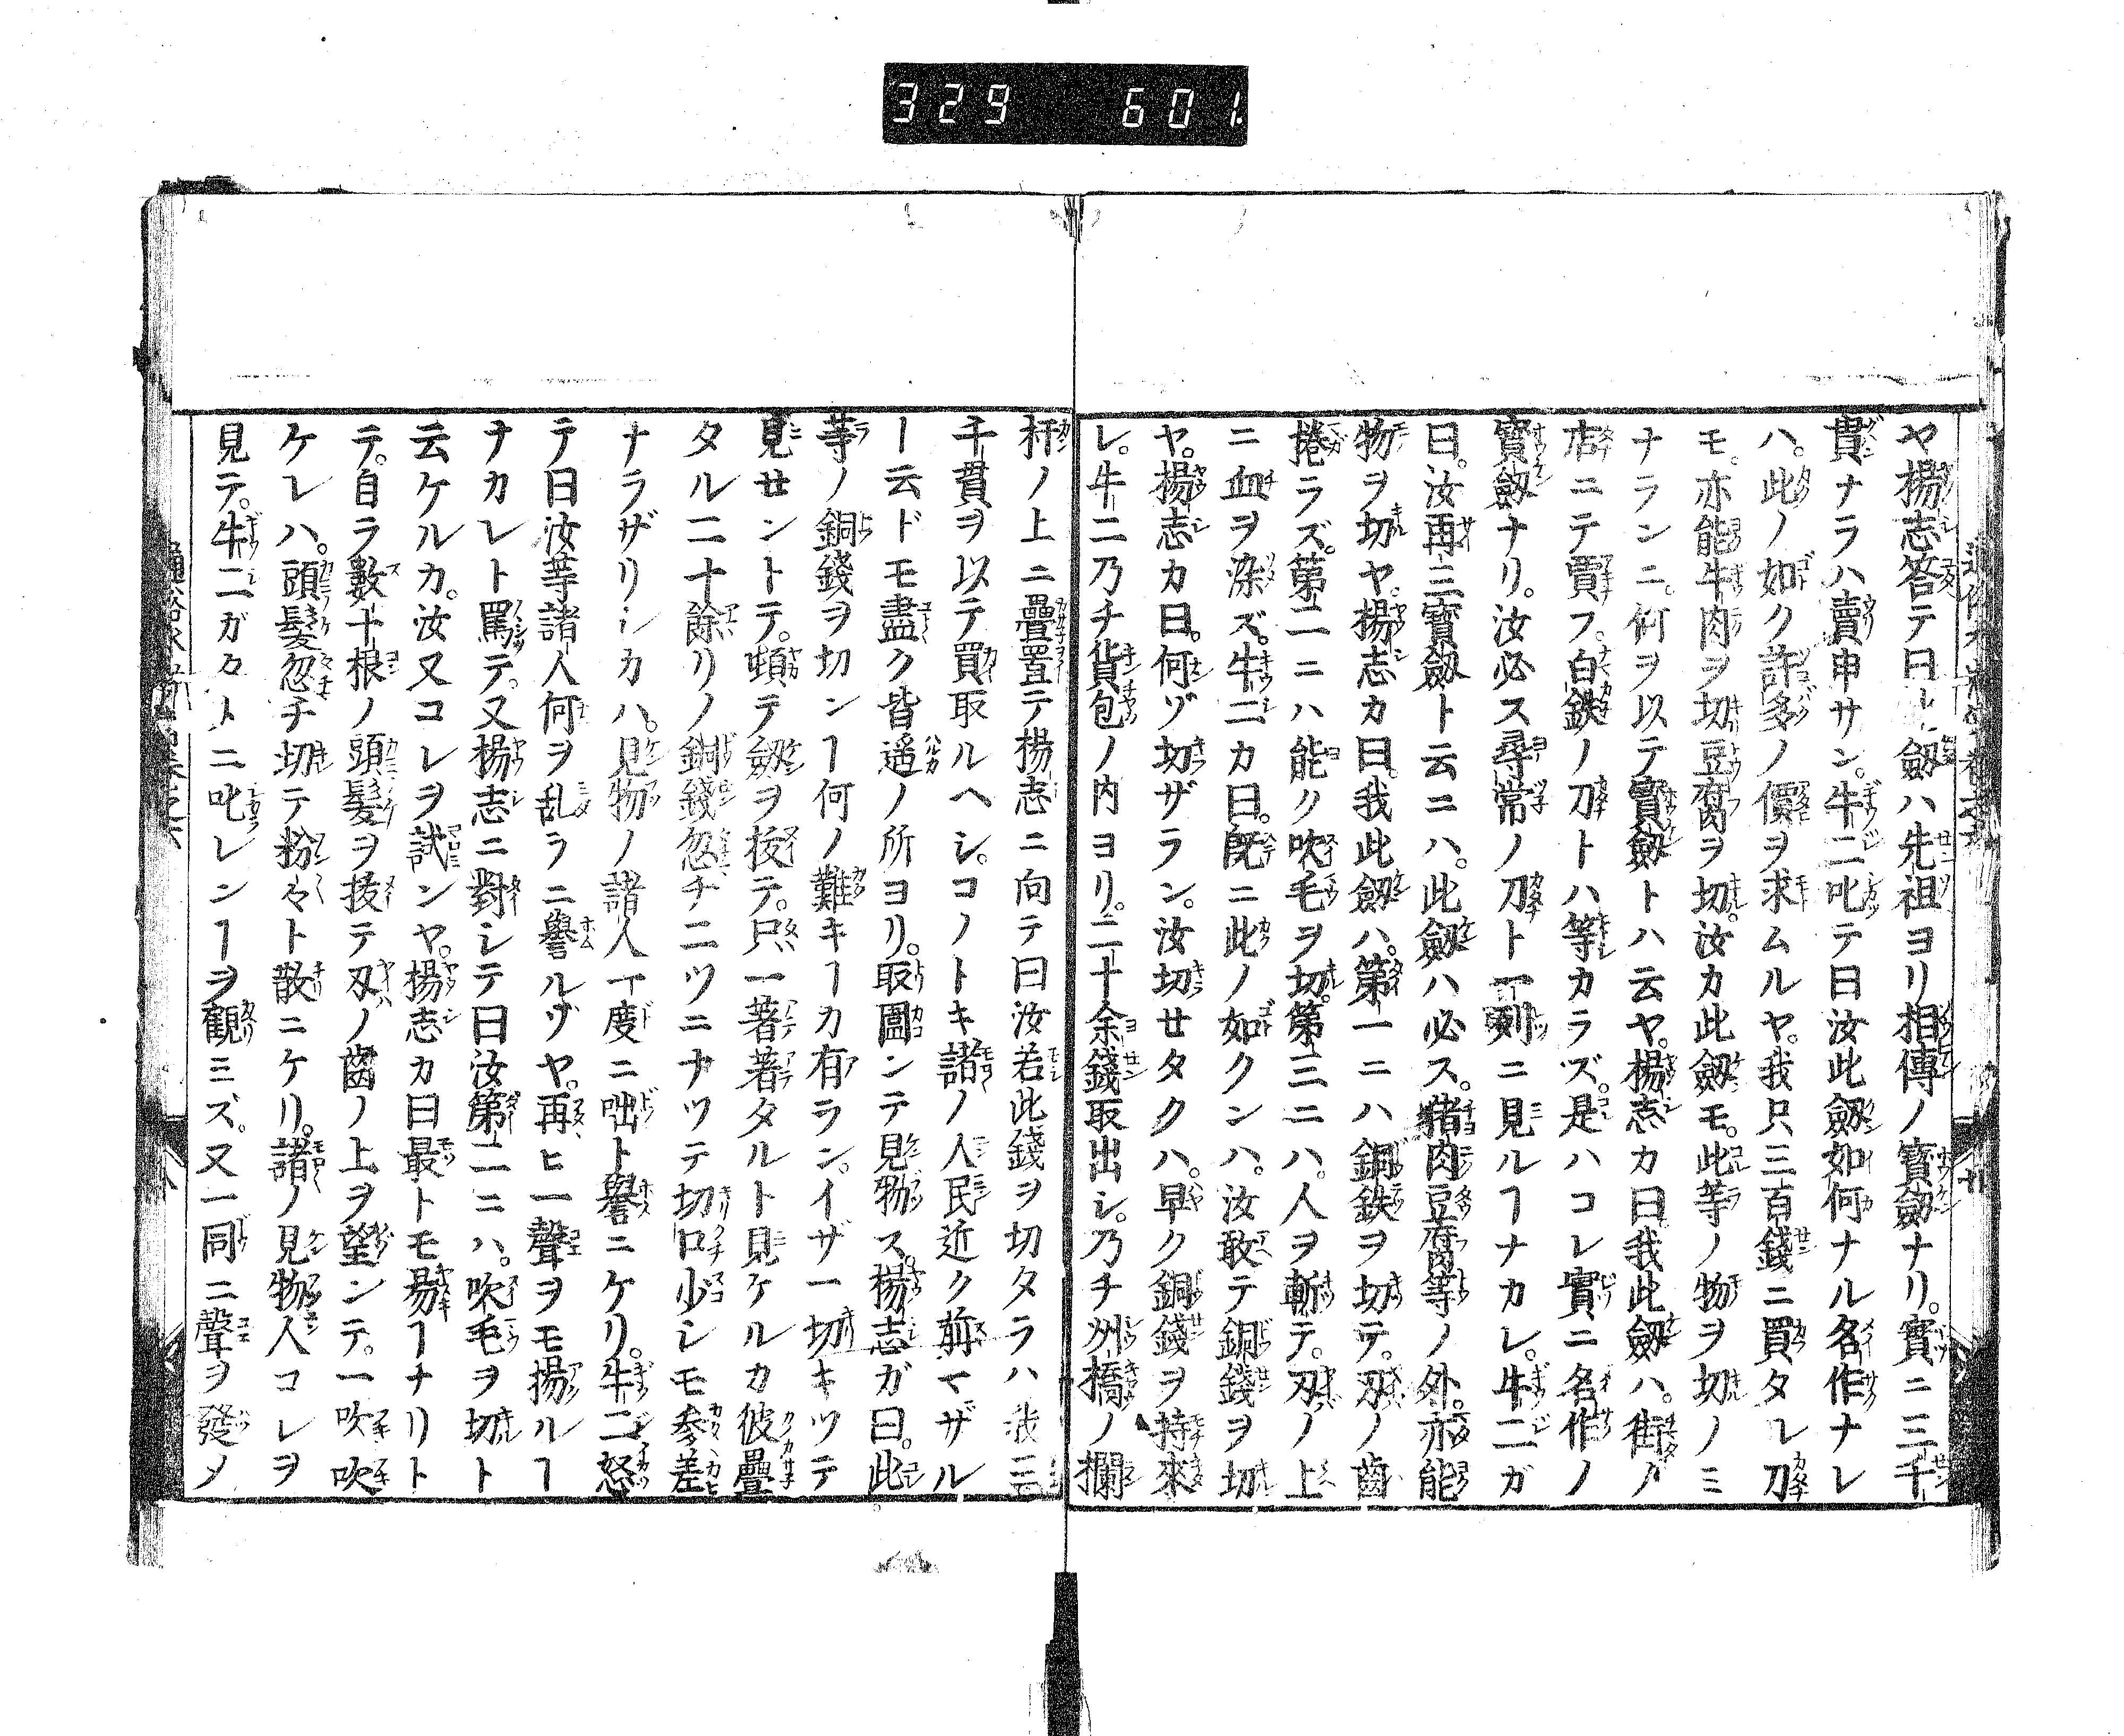 329 601.
ヤ楊志答テ曰劔ハ先祖ヨリ相傳ノ寳劔ナリ。實ニ三千
貫ナラハ賣申サン。牛二叱テ曰汝此劔如何ナル名作ナレ
ハ。此ノ如ク許多ノ價ヲ求ムルヤ。我只三百錢ニ買タレ刀
モ。亦能牛肉ヲ切豆腐ヲ切。汝カ此劔モ。此等ノ物ヲ切ノミ
ナランニ。何ヲ以テ寳劔トハ云ヤ。楊志カ曰我此劔ハ。街ノ
店ニテ賣フ。白鉄ノ刀トハ等カラズ。是ハコレ實ニ名作ノ
寳劔ナリ。汝必ス尋常ノ刀ト一列ニ見ルヿナカレ。牛二ガ
曰。汝再三寳劔ト云ニハ。此劔ハ必ス。猪肉豆腐等ノ外。亦能
物ヲ切ヤ。楊志カ曰。我此劔ハ。第一ニハ銅鉄ヲ切テ。刃ノ齒
捲ラズ。第二ニハ能ク吹毛ヲ切。第三ニハ。人ヲ斬テ。刃ノ上
ニ血ヲ染ズ。牛二カ曰。既ニ此ノ如クンハ。汝敢テ銅錢ヲ切
ヤ。楊志カ曰。何ゾ切ザラン。汝切セタクハ。早ク銅錢ヲ持來
レ。牛二乃チ貨包ノ内ヨリ。二十余錢取出シ。乃チ州橋ノ欄
杆ノ上ニ疊置テ楊志ニ向テ曰汝若此錢ヲ切タラハ我三
千貫ヲ以テ買取ルヘシ。コノトキ諸ノ人民近ク前マザル
ト云ドモ盡ク皆遥ノ所ヨリ。取圍ンテ見物ス。楊志ガ曰。此
等ノ銅錢ヲ切ンヿ何ノ難キヿカ有ラン。イザ一切キツテ
見セントテ。頓テ劔ヲ拔テ。只一著著タルト見ケルカ彼疊
タル二十餘リノ銅錢忽チ二ツニナツテ切口少シモ參差
ナラザリシカハ。見物ノ諸人一度ニ咄ト譽ニケリ。牛二怒
テ曰汝等諸人何ヲ乱ラニ譽ルゾヤ。再ヒ一聲ヲモ揚ルヿ
ナカレト罵テ。又楊志ニ對シテ曰汝第二ニハ。吹毛ヲ切ト
云ケルカ。汝又コレヲ試ンヤ。楊志カ曰最トモ易ヿナリト
テ。自ラ數十根ノ頭髪ヲ拔テ刄ノ齒ノ上ヲ望ンテ。一吹吹
ケレハ。頭髪忽チ切テ粉々ト散ニケリ。諸ノ見物人コレヲ
見テ。牛二ガ々トニ叱レンヿヲ觀ミズ。又一同ニ聲ヲ發メ